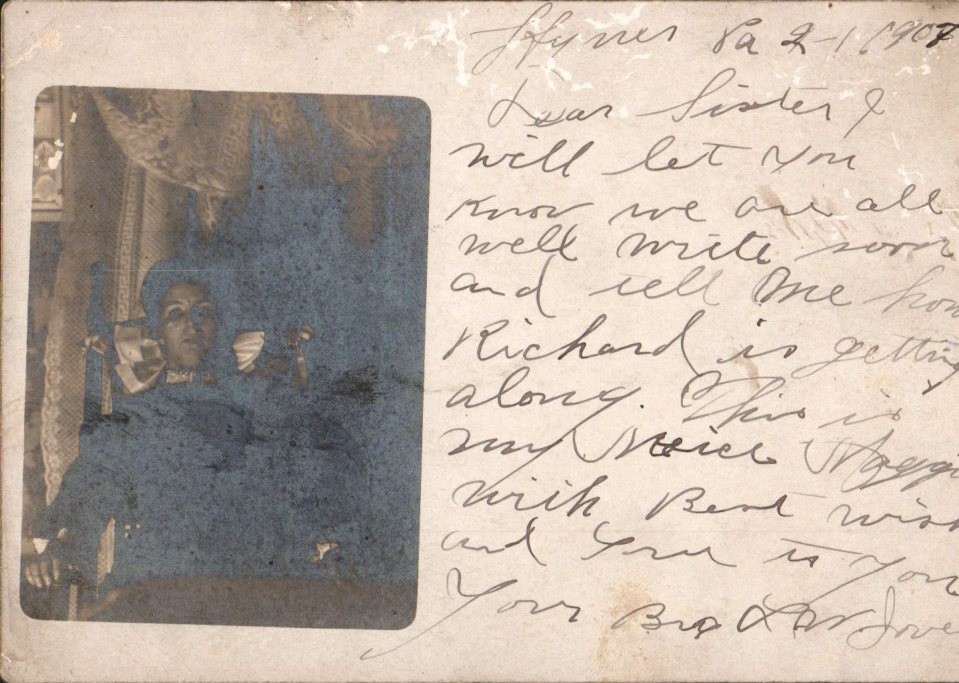 Pa 2-1 1907
Dear Sister I
will let you
know we are all
well write soon
and tell me how
Richard is getting
along. This is
my Neice Maggi
with Best wish
and love to you
Your Bro